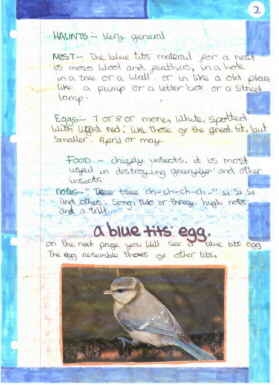 2
HAUNTS - Very general
NEST - The blue tits material for a nest
is moss wool and feathers, in a hole
in a tree or a wall. or in like a old place
like a pump or a letter box or a street
lamp.
Eggs - 7 or 8 or more, White, spotted
with red. like those of the great tit, but
smaller. April or may.
FOOD - chiefly insects, it is most
useful in destroying and other
insects
notes - "
and other. Song: two or three high notes
and a trill.
a blue tits egg.
on the next page you will see a blue tits egg
The egg resemble those of other tits.